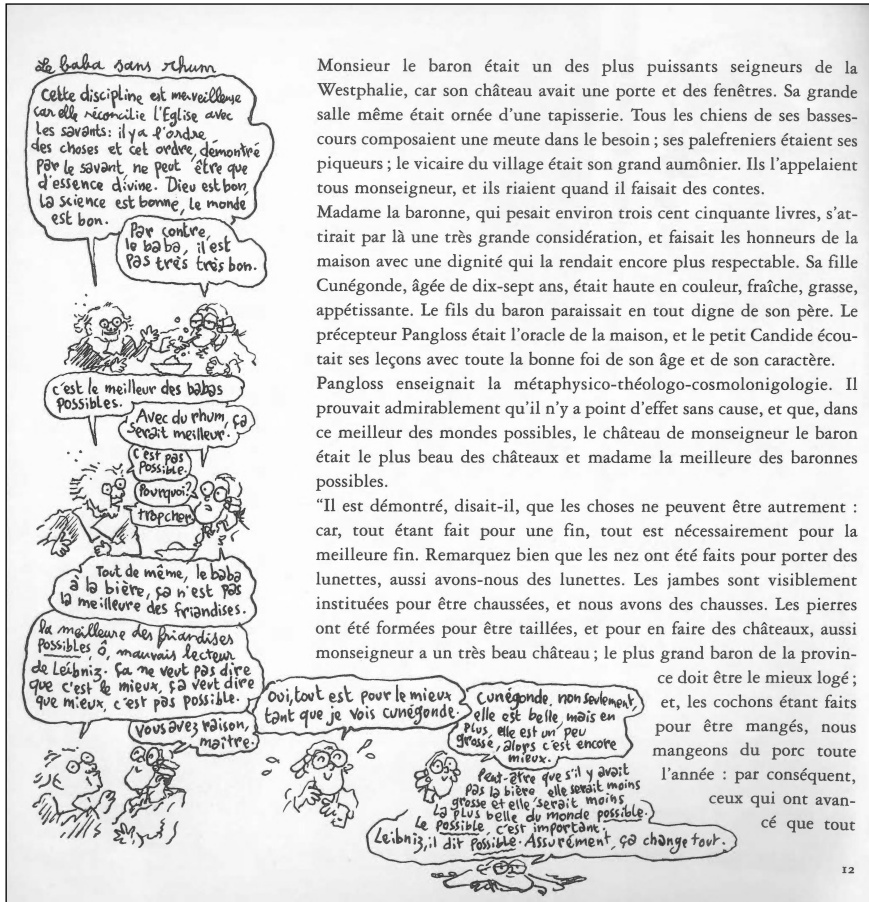 Le baba sans rhum
Cette discipline est merveilleuse
car elle réconcilie l'Eglise avec
les savants: il y a l'ordre
des choses et cet ordre, démontré
par le savant, ne peut être que
d'essence divine. Dieu est bon,
la science est bonne, le monde
est bon.
Par contre,
le baba, il est
pas très très bon.
c'est le meilleur des babas
possibles.
Avec du rhum, ça
serait meilleur.
C'est pas
possible.
Pourquoi?
trop cher.
Tout de même, le baba
à la bière, ça n'est pas
la meilleure des friandises.
la meilleure des friandises
possibles ô, mauvais lecteur
de Leibniz. Ça ne veut pas dire
que c'est le mieux, ça veut dire
que mieux, c'est pas possible.
vous avez raison,
maître.
Oui, tout est pour le mieux
tant que je vois cunégonde.
Cunégonde, non seulement,
elle est belle, mais en
plus, elle est un peu
grosse, alors c'est encore
mieux.
Peut-être que s'il y avait
pas la bière elle serait moins
grosse et elle serait moins
la plus belle du monde possible.
Le possible, c'est important.
Leibniz, il dit possible. Assurément, ça change tout.
Monsieur le baron était un des plus puissants seigneurs de la
Westphalie, car son château avait une porte et des fenêtres. Sa grande
salle même était ornée d'une tapisserie. Tous les chiens de ses basses-
cours composaient une meute dans le besoin ; ses palefreniers étaient ses
piqueurs ; le vicaire du village était son grand aumônier. Ils l'appelaient
tous monseigneur, et ils riaient quand il faisait des contes.
Madame la baronne, qui pesait environ trois cent cinquante livres, s'at-
tirait par là une très grande considération, et faisait les honneurs de la
maison avec une dignité qui la rendait encore plus respectable. Sa fille
Cunégonde, âgée de dix-sept ans, était haute en couleur, fraîche, grasse,
appétissante. Le fils du baron paraissait en tout digne de son père. Le
précepteur Pangloss était l'oracle de la maison, et le petit Candide écou-
tait ses leçons avec toute la bonne foi de son âge et de son caractère.
Pangloss enseignait la métaphysico-théologo-cosmolonigologie. Il
prouvait admirablement qu'il n'y a point d'effet sans cause, et que, dans
ce meilleur des mondes possibles, le château de monseigneur le baron
était le plus beau des châteaux et madame la meilleure des baronnes
possibles.
"Il est démontré, disait-il, que les choses ne peuvent être autrement :
car, tout étant fait pour une fin, tout est nécessairement pour la
meilleure fin. Remarquez bien que les nez ont été faits pour porter des
lunettes, aussi avons-nous des lunettes. Les jambes sont visiblement
instituées pour être chaussées, et nous avons des chausses. Les pierres
ont été formées pour être taillées, et pour en faire des châteaux, aussi
monseigneur a un très beau château ; le plus grand baron de la provin-
ce doit être le mieux logé ;
et, les cochons étant faits
pour être mangés, nous
mangeons du porc toute
l'année : par conséquent,
ceux qui ont avan-
cé que tout
12